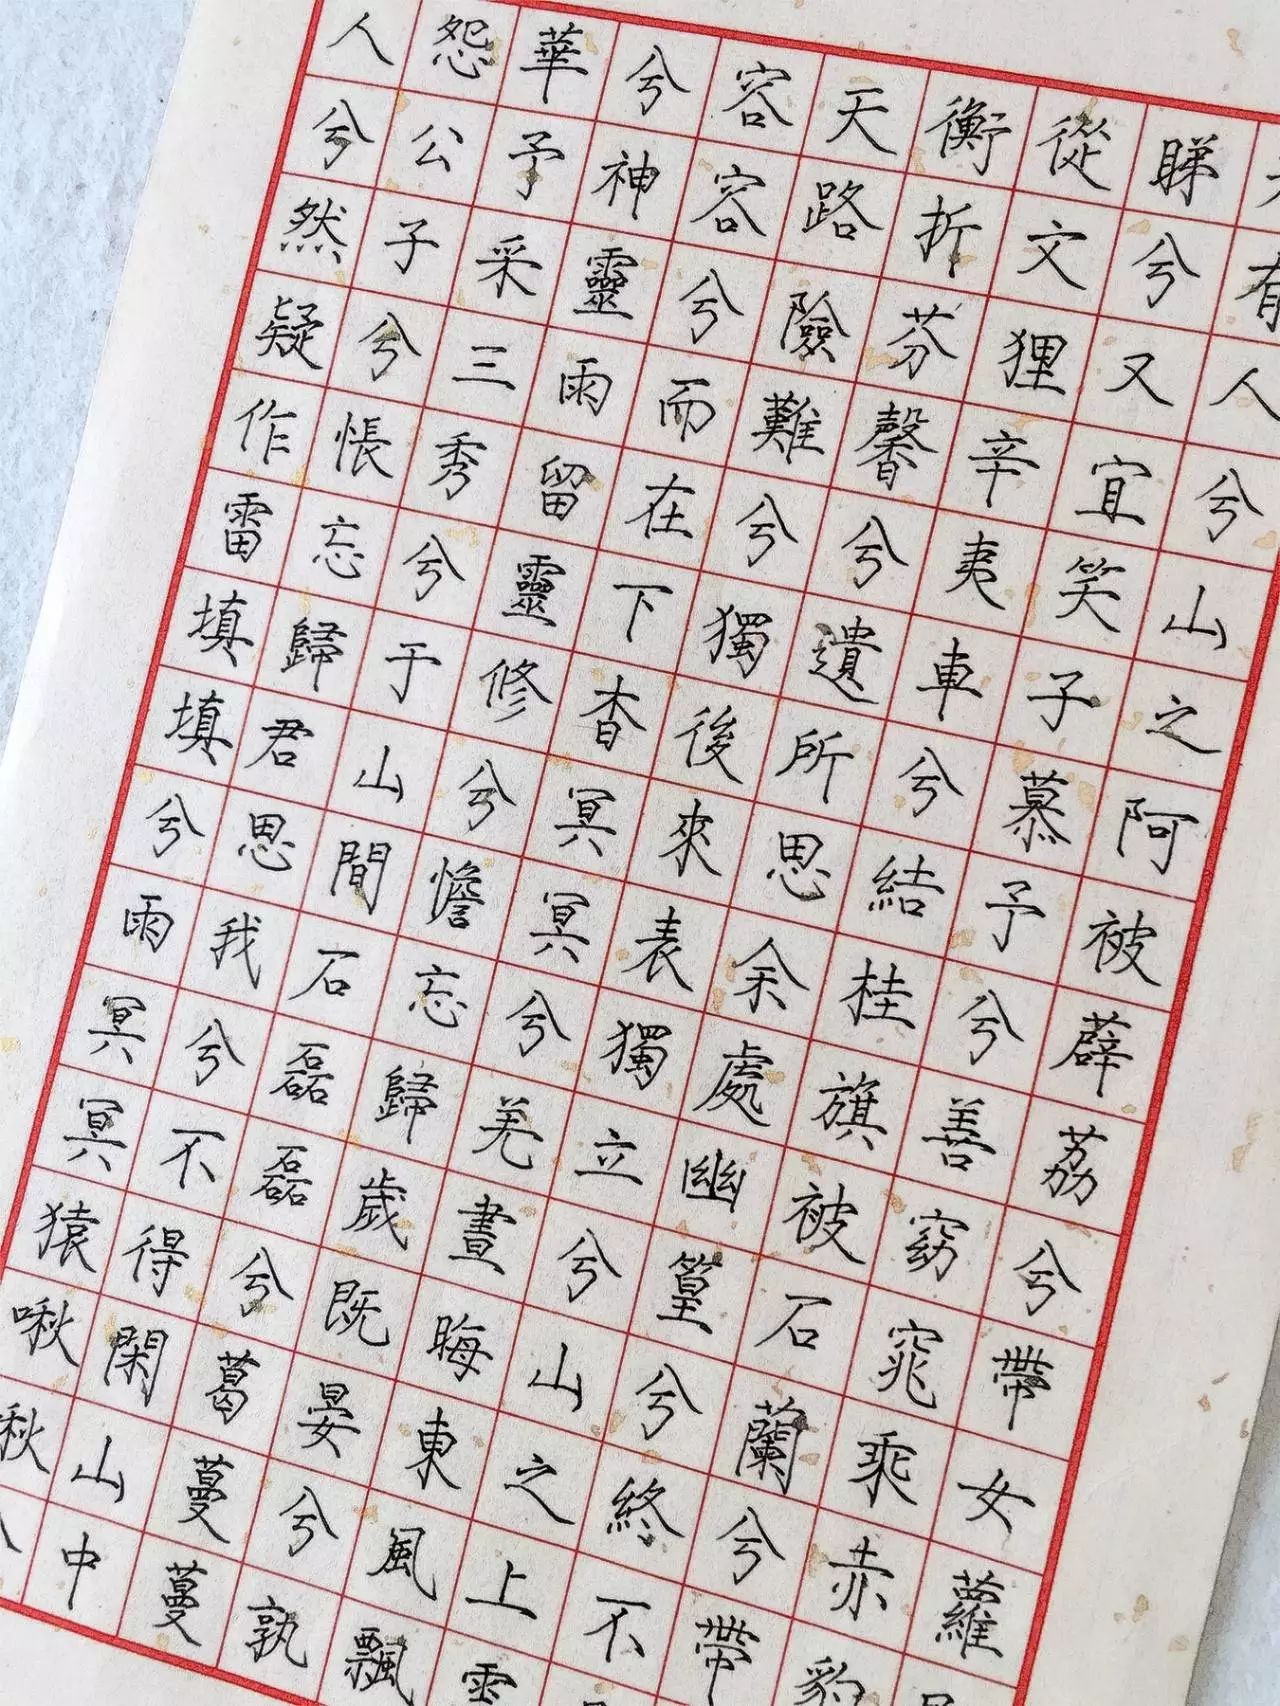 有人兮山之阿被薜荔兮帶女蘿
睇兮又宜笑子慕予兮善窈窕乘赤豹
從文狸辛夷車兮結桂旗被石蘭兮帶
衡折芬馨兮遺所思余處幽篁兮終不
天路險難兮獨後來表獨立兮山之上雲
容容兮而在下杳冥冥兮羌晝晦東風飄
兮神靈雨留靈修兮憺忘歸歲既晏兮孰
華予采三秀兮于山間石磊磊兮葛蔓蔓
怨公子兮悵忘歸君思我兮不得閑山中
人兮然疑作雷填填兮雨冥冥猿啾啾